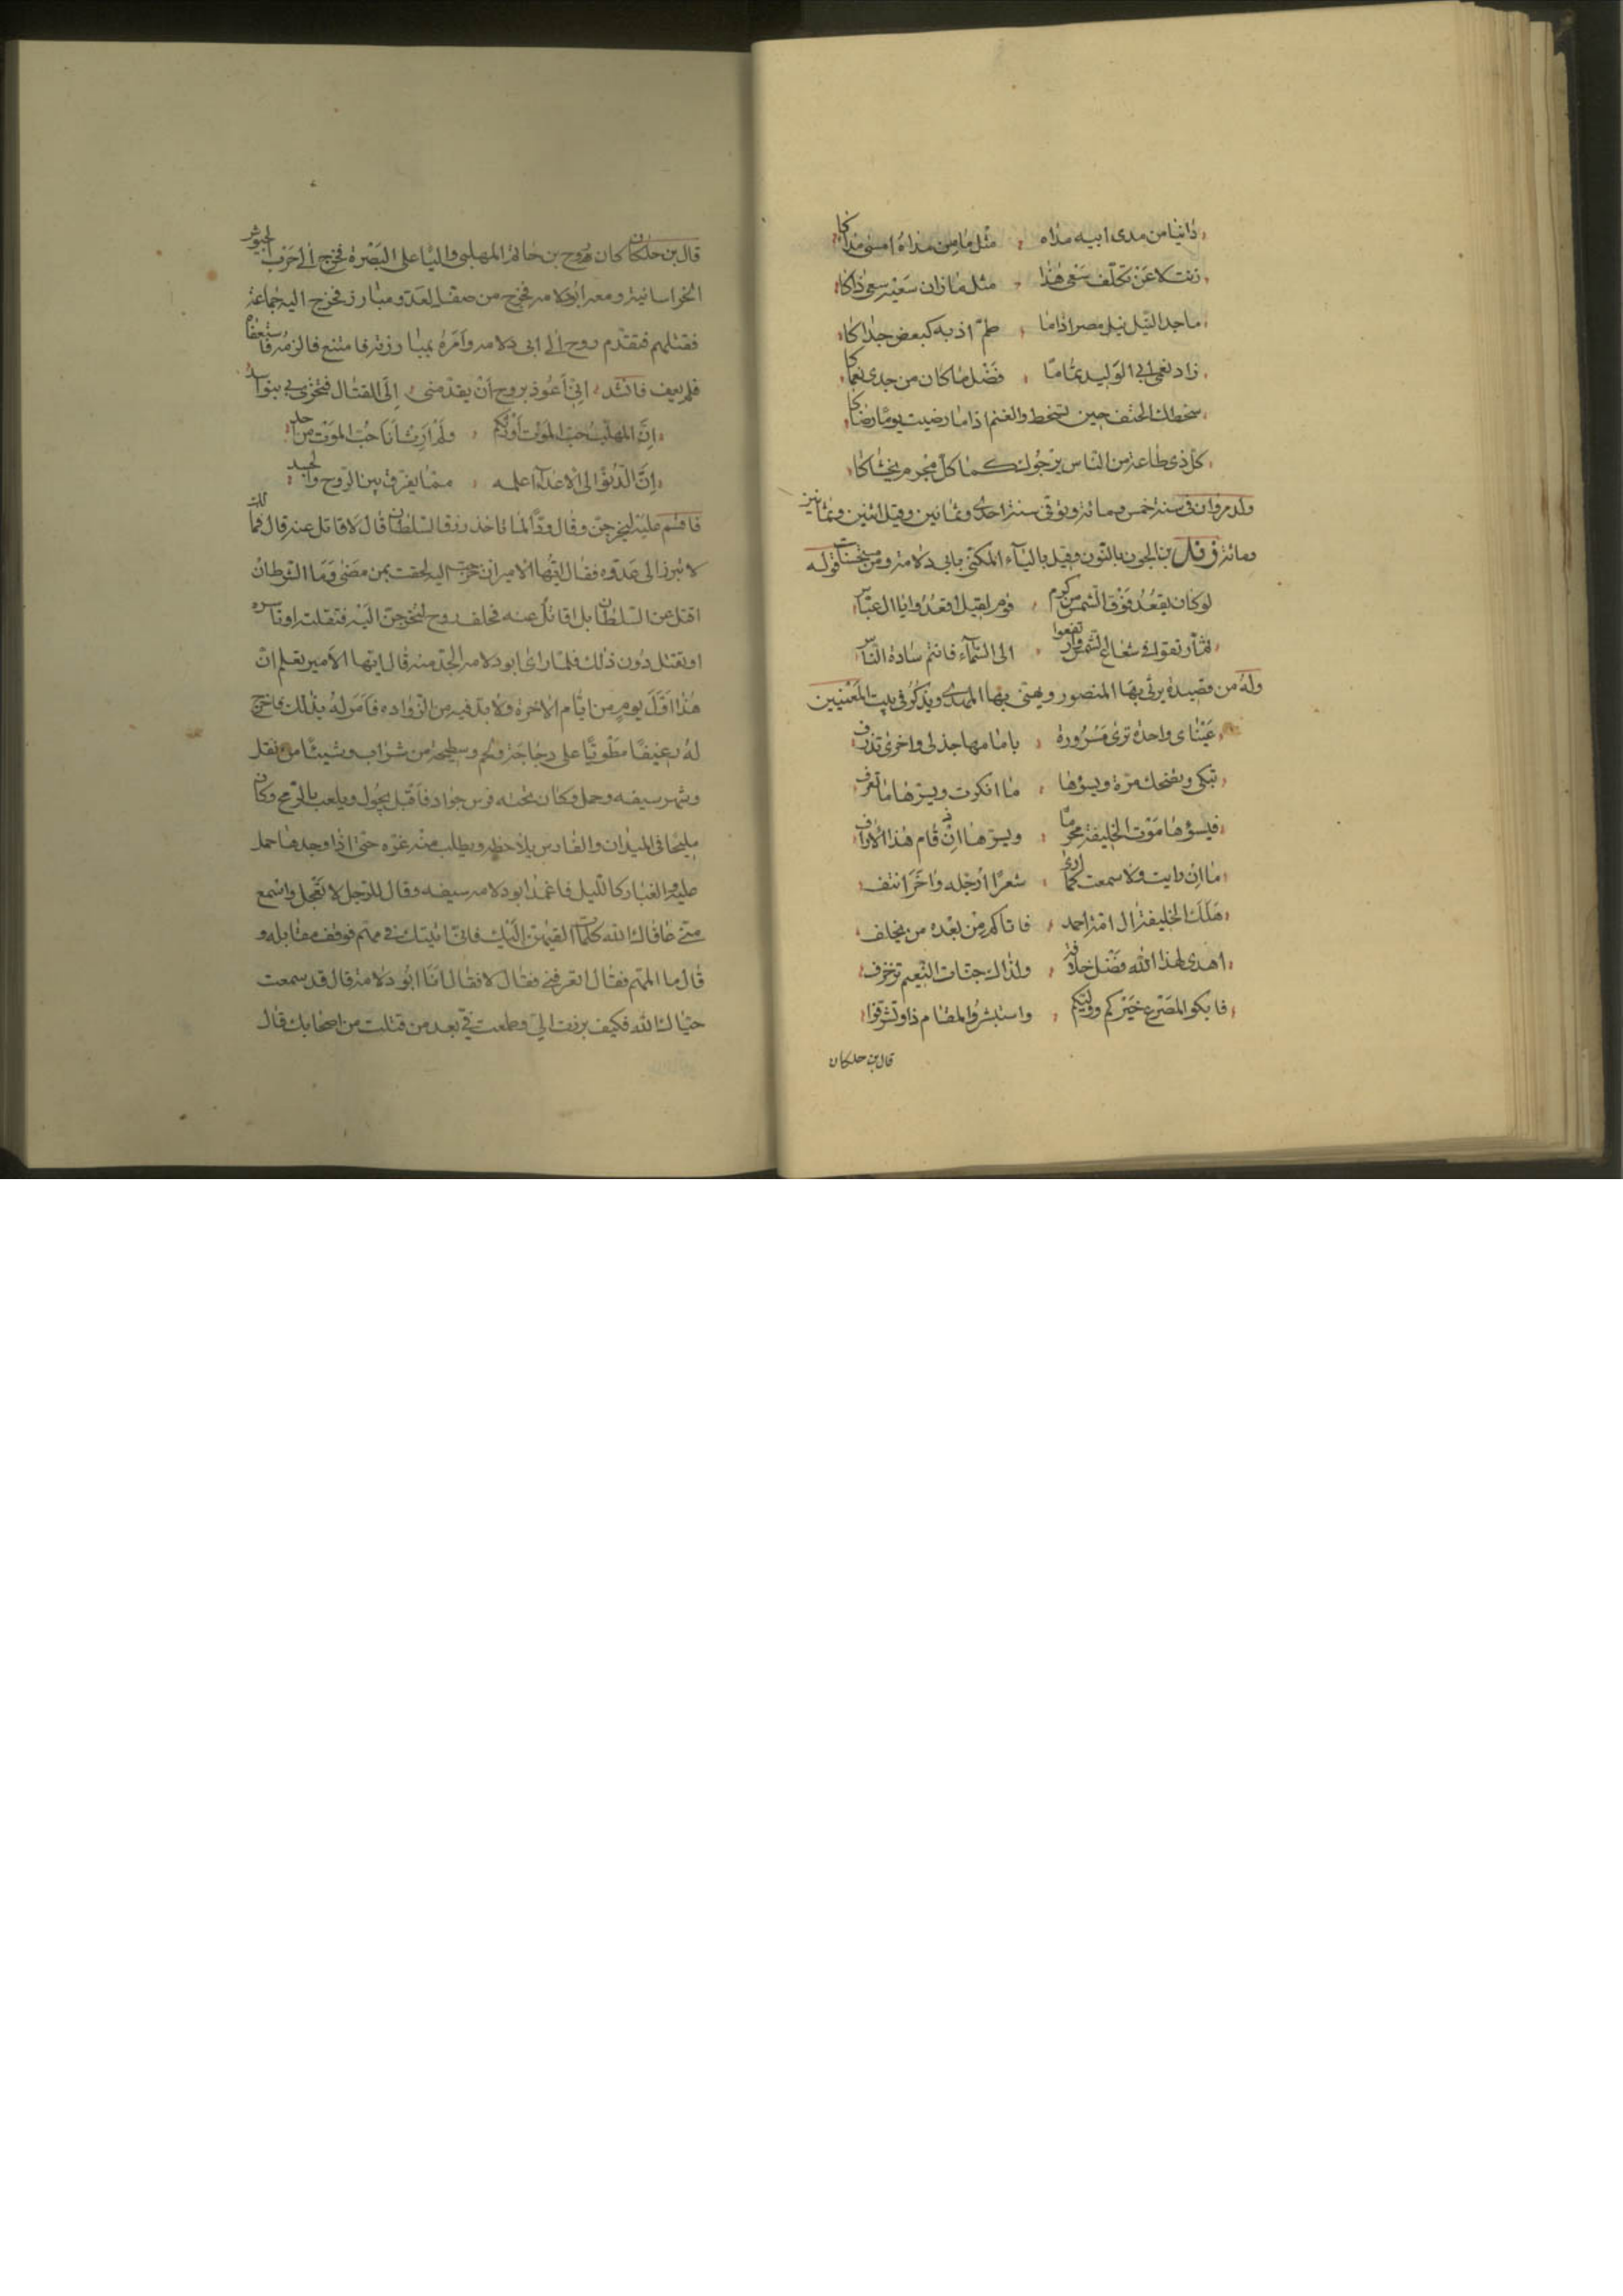 دانيا من مدى ابيه مداه مثل ما من مداه امسى مداكا
زنت لا عن تخلف سعى هذا مثل ما زان سعيه سعى ذاكا
ما جدا النيل نيل مصر اذا ما طم اذيه كبعض جداكا
زاد نعمى ابي الوليد تماما فضل ما كان من جدى نعماكا
سخطك الحتف حين تسخط والغنم اذا ما رضيت يوما رضاكا
كل ذى طاعة من الناس يرجوك كما كل مجرم يخشاكا
ولد مروان فى سنة خمس ومائة وتوفى سنة احدى وثمانين وقيل اثنين وثمانين
ومائة بن الجون بالنون وقيل بالياء المكنى بابى دلامة ومن قوله
لو كان يقعد فوق الشمس من كرم قوم لقيل اقعدوا يا ال عباس
ثم ارتقوا فى شعاع الشمس وارتفعوا الى السماء فانتم سادة الناس
وله من قصيدة يرثى بها المنصور ويهنى بها المهدى ويذكر فى بيت المعنيين
عيناى واحدة ترى مسرورة بامامها جذلى واخرى تذرف
تبكى وتضحك مرة ويسؤها ما انكرت ويسرها ما تعرف
فيسؤها موت الخليفة محرما ويسرها ان قام هذا الارأف
ما ان رايت ولا سمعت كما ارى شعرا ارجله واخر انتف
هلك الخليفة ال امة احمد فاتاكم من بعده من يخلف
اهدى لهذا الله فضل خلافة ولذاك جنات النعيم تزخرف
فابكوا لمصرع خيركم ووليكم واستبشروا لمقام ذا وتشرفوا
قال بن خلكان
قال بن خلكان كان روح بن حاتم المهلبى واليا على البصرة فخرج الى حرب الجيوش
الخراسانية ومعه ابودلامه فخرج من صف العدو مبارز فخرج اليه جماعة
فقتلهم فتقدم روح الى ابى دلامه وامره بمبارزته فامتنع فالزمه فاستعفاه
فلم يعف فانشد انى اعوذ بروح ان يقدمنى الى القتال فتخزى بى بنو اسد
ان المهلب حب الموت اورثكم ولم ارث انا حب الموت من احد
ان الدنو الى الاعداء اعلمه مما يفرق بين الروح والجسد
فاقسم عليه ليخرجن وقال لماذا تاخذ رزق السلطان قال لاقاتل عنه قال فمالك
لا تبرز الى عدو فقال ايها الامير ان خرجت اليه لحقت بمن مضى وما الشرط ان
اقتل عن السلطان بل اقاتل عنه فحلف روح لتخرجن اليه فتقتله او تاسره
او تقتل دون ذلك فلما راى ابو دلامه الجد منه قال ايها الامير تعلم ان
هذا اول يوم من ايام الاخرة ولابد فيه من الزواده فامر له بذلك فاخرج
له رغيفا مطويا على دجاجة ولحم وسطيحة من شراب وشيئا من نقل
وشهر سيفه وحمل وكان تحته فرس جواد فاقبل يجول ويلعب بالرمح وكان
مليحا فى الميدان والفارس يلاحظه ويطلب منه غرة حتى اذا وجدها حمل
عليه والغبار كالليل فاغمد ابو دلامه سيفه وقال للرجل لا تعجل واسمع
منى عافاك الله كلمات القيهن اليك فانما اتيتك فى مهم فوقف مقابله و
قال ما المهم فقال اتعرفنى فقال لا فقال انا ابو دلامة قال قد سمعت
حياك الله فكيف برزت الى وطمعت فى بعد من قتلت من اصحابك قال